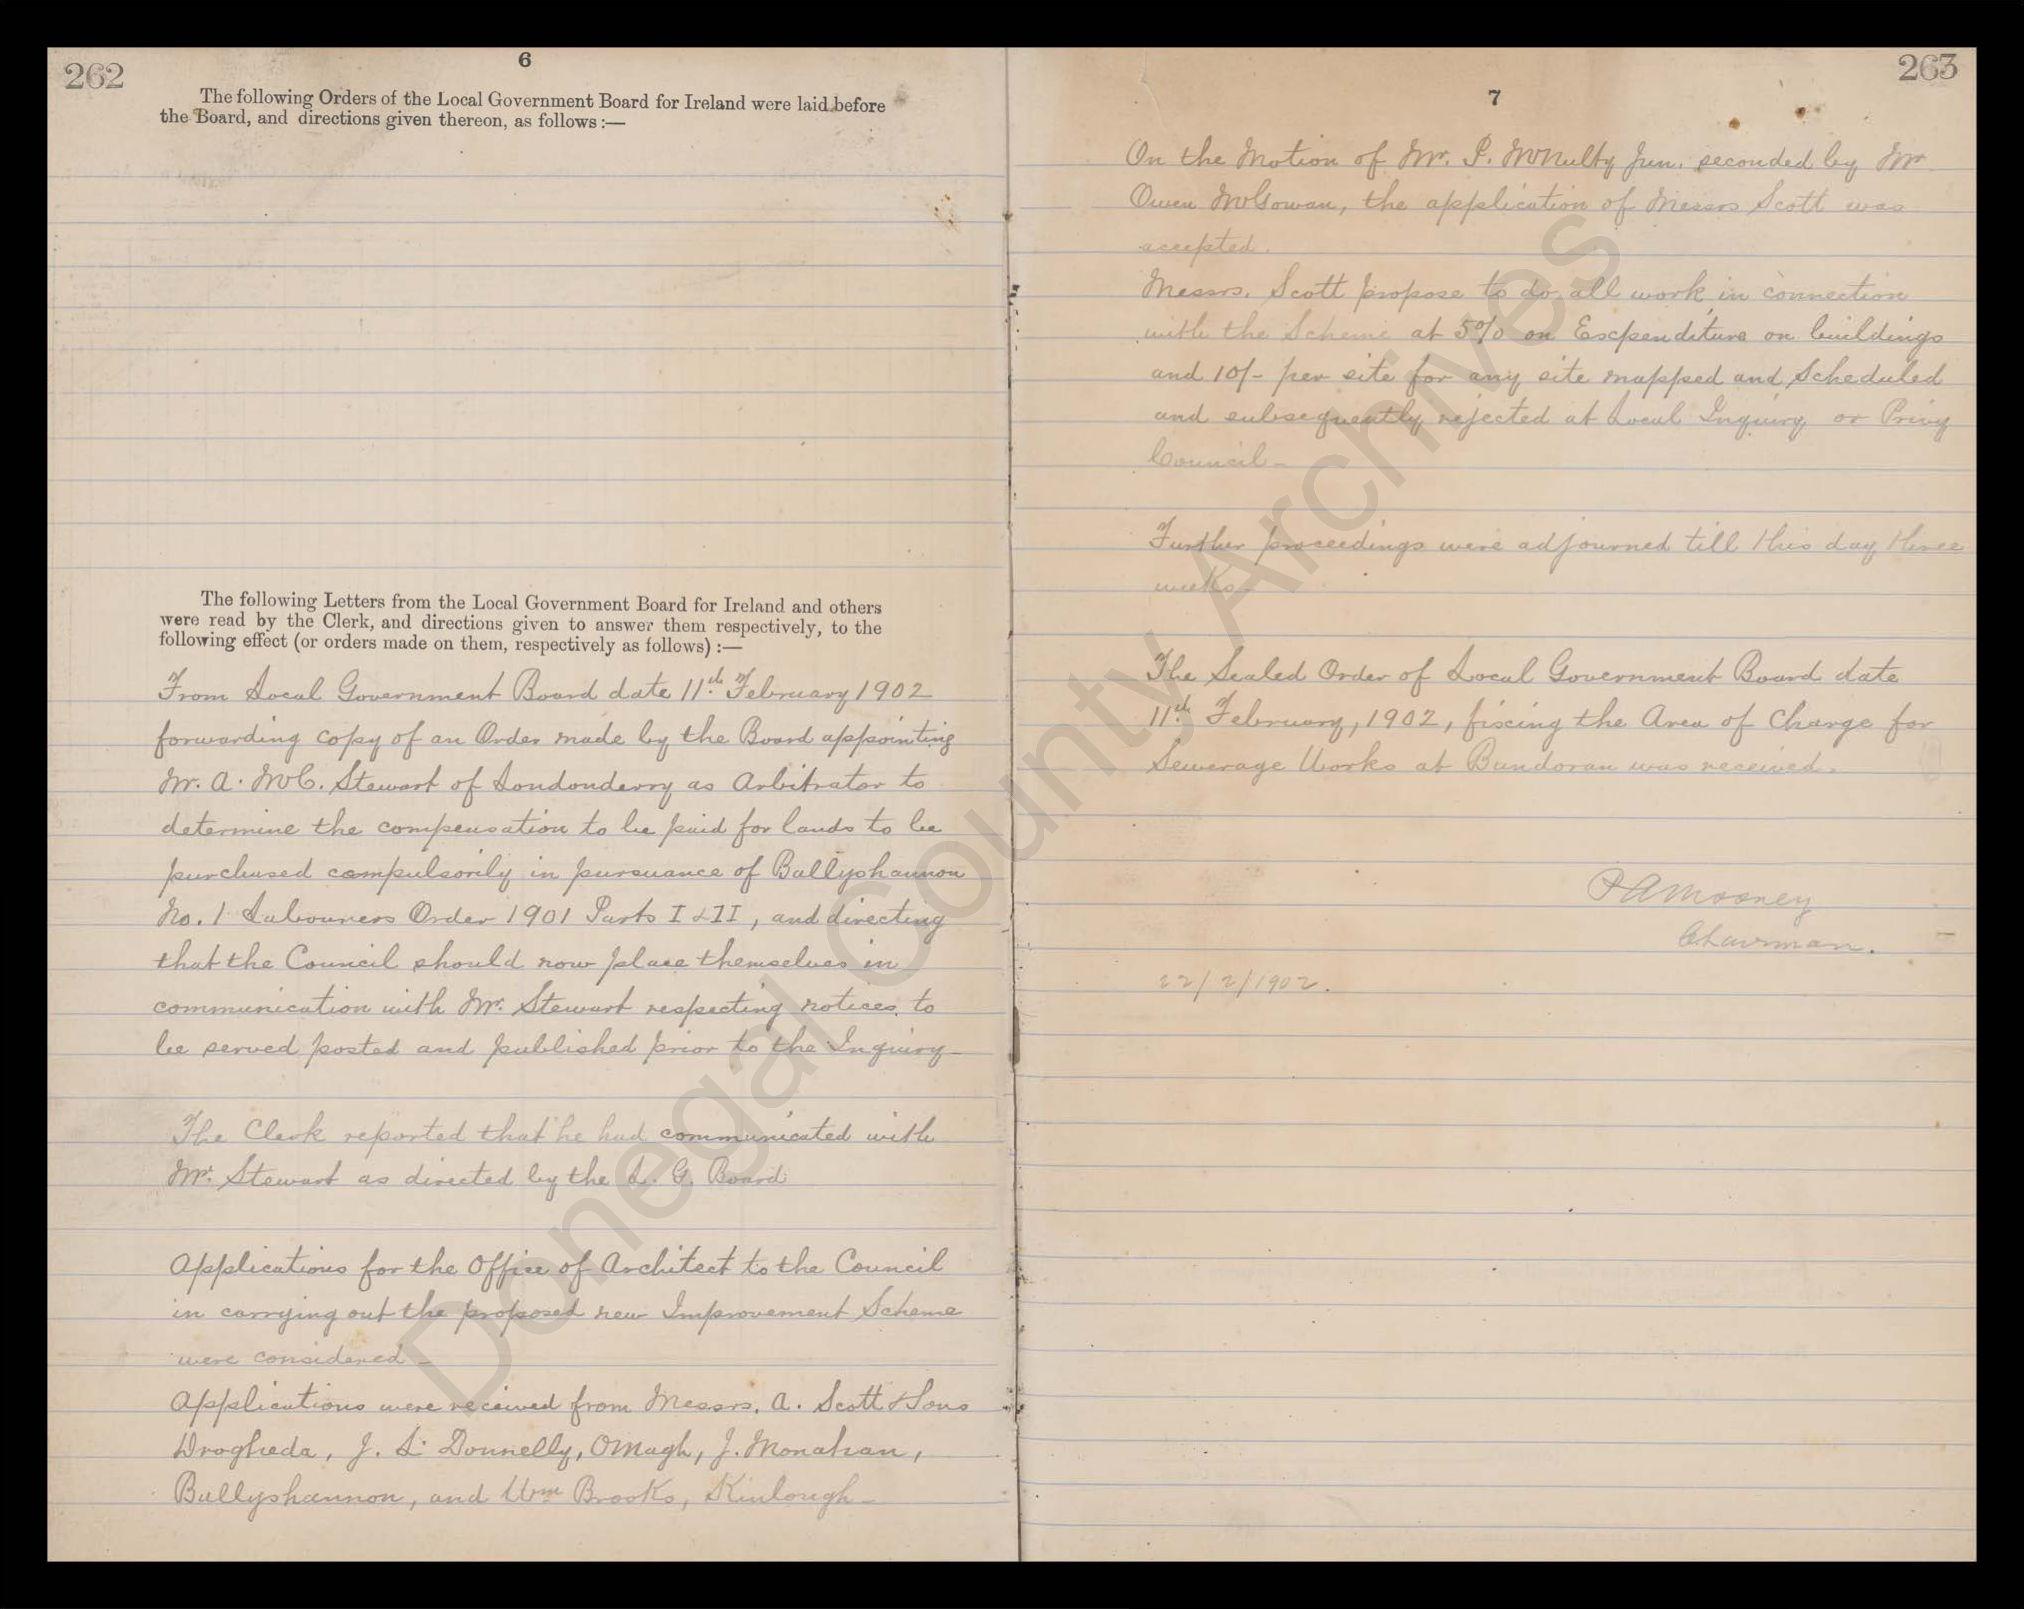 262
6
The following Orders of the Local Government Board for Ireland were laid before
the Board, and directions given thereon, as follows :—
The following Letters from the Local Government Board for Ireland and others
were read by the Clerk, and directions given to answer them respectively, to the
following effect (or orders made on them, respectively as follows) :—
From Local Government Board date 11th February 1902
forwarding copy of an Order made by the Board appointing
Mr. A. McC. Stewart of Londonderry as Arbitrator to
determine the compensation to be paid for lands to be
purchased compulsorily in pursuance of Ballyshannon
No. 1 Labourers Order 1901 Parts I & II, and directing
that the Council should now place themselves in
communication with Mr. Stewart respecting notices to
be served posted and published prior to the Inquiry—
The Clerk reported that he had communicated with
Mr. Stewart as directed by the L. G. Board
Applications for the Office of Architect to the Council
in carrying out the proposed new Improvement Scheme
were considered —
Applications were received from Messrs. A. Scott & Sons
Drogheda, J. L. Donnelly, Omagh, J. Monahan,
Ballyshannon, and Wm Brooks, Kinlough —
263
7
On the Motion of Mr. P. McNulty Jun. seconded by Mr
Owen McGowan, the application of Messrs Scott was
accepted.
Messrs. Scott propose to do all work in connection
with the Scheme at 5% on Expenditure on buildings
and 10/- per site for any site mapped and Scheduled
and subsequently rejected at Local Inquiry or Privy
Council —
Further proceedings were adjourned till this day three
weeks
The Sealed Order of Local Government Board date
11th February, 1902, fixing the Area of Charge for
Sewerage Works at Bundoran was received.
P A Mooney
Chairman.
22/2/1902.
Donegal County Archives